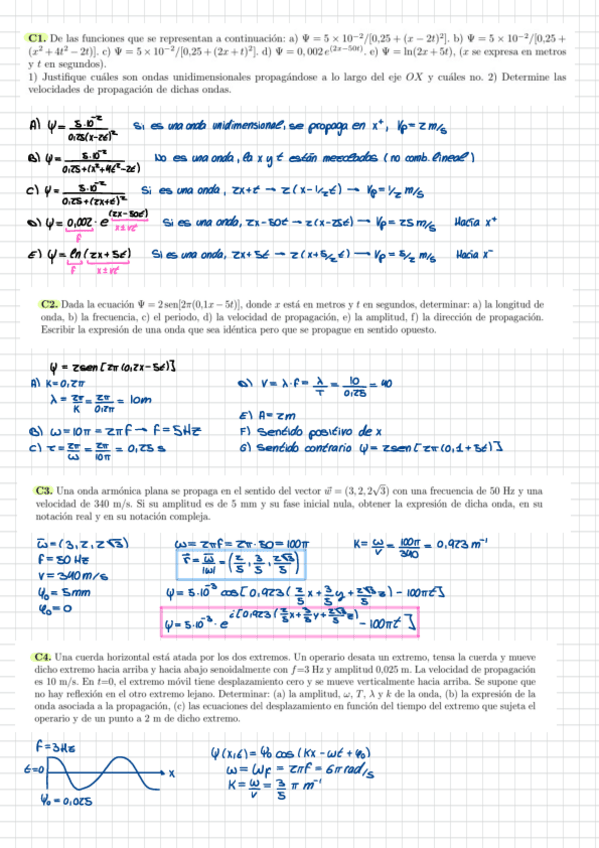 C1. De las funciones que se representan a continuación: a) Ψ = 5 × 10⁻²/[0,25 + (x − 2t)²]. b) Ψ = 5 × 10⁻²/[0,25 +
(x² + 4t² − 2t)]. c) Ψ = 5 × 10⁻²/[0,25 + (2x + t)²]. d) Ψ = 0,002e^(2x−50t). e) Ψ = ln(2x + 5t), (x se expresa en metros
y t en segundos).
1) Justifique cuáles son ondas unidimensionales propagándose a lo largo del eje OX y cuáles no. 2) Determine las
velocidades de propagación de dichas ondas.
A) Ψ = 5·10⁻² / 0,25(x-2t)² Si es una onda unidimensional, se propaga en x⁺, Vp = 2 m/s
B) Ψ = 5·10⁻² / 0,25+(x²+4t²-2t) No es una onda, la x y t están mezcladas (no comb. lineal)
C) Ψ = 5·10⁻² / 0,25+(2x+t)² Si es una onda, 2x+t → 2(x-1/2t) → Vp = 1/2 m/s
D) Ψ = 0,002 · e^(2x-50t) Si es una onda, 2x-50t → 2(x-25t) → Vp = 25 m/s Hacia x⁺
f x±vt
E) Ψ = ln(2x+5t) Si es una onda, 2x+5t → 2(x+5/2t) → Vp = 5/2 m/s Hacia x⁻
f x±vt
C2. Dada la ecuación Ψ = 2 sen[2π(0,1x − 5t)], donde x está en metros y t en segundos, determinar: a) la longitud de
onda, b) la frecuencia, c) el periodo, d) la velocidad de propagación, e) la amplitud, f) la dirección de propagación.
Escribir la expresión de una onda que sea idéntica pero que se propague en sentido opuesto.
Ψ = 2sen[2π(0,2x-5t)]
A) K = 0,2π
λ = 2π/K = 2π/0,2π = 10m
B) ω = 10π = 2πf → f = 5Hz
C) T = 2π/ω = 2π/10π = 0,25 s
D) V = λ·f = λ/T = 10/0,25 = 40
E) A = 2m
F) Sentido positivo de x
G) Sentido contrario Ψ = 2sen[2π(0,1+5t)]
C3. Una onda armónica plana se propaga en el sentido del vector w⃗ = (3, 2, 2√3) con una frecuencia de 50 Hz y una
velocidad de 340 m/s. Si su amplitud es de 5 mm y su fase inicial nula, obtener la expresión de dicha onda, en su
notación real y en su notación compleja.
ω̄ = (3, 2, 2√3)
f = 50 Hz
V = 340 m/s
Ψ₀ = 5mm
φ₀ = 0
ω = 2πf = 2π·50 = 100π
r⃗ = ω̄/|ω| = (2/5, 3/5, 2√3/5)
K = ω/v = 100π/340 = 0,923 m⁻¹
Ψ = 5·10⁻³ cos[0,923(2/5x+3/5y+2√3/5z) - 100πt]
Ψ = 5·10⁻³ · e^i[0,923(2/5x+3/5y+2√3/5z) - 100πt]
C4. Una cuerda horizontal está atada por los dos extremos. Un operario desata un extremo, tensa la cuerda y mueve
dicho extremo hacia arriba y hacia abajo senoidalmente con f=3 Hz y amplitud 0,025 m. La velocidad de propagación
es 10 m/s. En t=0, el extremo móvil tiene desplazamiento cero y se mueve verticalmente hacia arriba. Se supone que
no hay reflexión en el otro extremo lejano. Determinar: (a) la amplitud, ω, T, λ y k de la onda, (b) la expresión de la
onda asociada a la propagación, (c) las ecuaciones del desplazamiento en función del tiempo del extremo que sujeta el
operario y de un punto a 2 m de dicho extremo.
f = 3Hz
t=0
x
Ψ₀ = 0,025
Ψ(x,t) = Ψ₀ cos(Kx - ωt + φ₀)
ω = ωf = 2πf = 6π rad/s
K = ω/v = 3/5 π m⁻¹